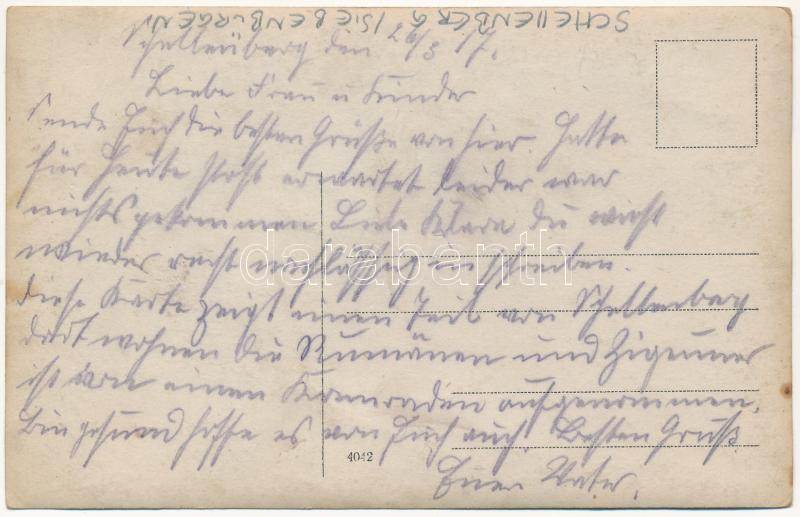 SCHELLENBERG /SIEBENBÜRGEN
Schellenberg den 26/8 17.
Liebe Frau u Kinder
sende Euch die besten Grüße von hier. Hatte
für heute Post erwartet leider war
nichts gekommen Liebe Klara du wirst
wieder recht nachlässig im schreiben.
diese Karte zeigt einen Teil von Schellenberg
dort wohnen die Rumänen und Zigeuner
ist von einem Kameraden aufgenommen.
bin gesund hoffe es von Euch auch. Besten Gruß
Euer Vater.
4042
darabanth